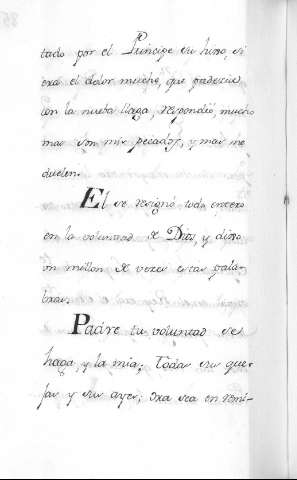 tado por el Principe su hijo, si
era el dolor mucho, que padecia
con la nueba llaga, respondió, mucho
mas son mis pecados, y mas me
duelen.
El se resignó todo entero
en la voluntad de Dios, y dixo
un millon de vezes estas pala-
bras.
Padre tu voluntad se
haga, y la mia; Todas sus que-
jas y sus ayes; oxa sea en remi-